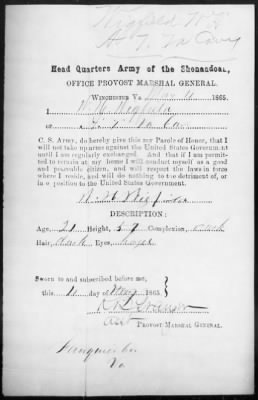 H. Q. Va Cav
Head Quarters Army of the Shenandoah,
OFFICE PROVOST MARSHAL GENERAL.
WINCHESTER Va. May 11 1865.
I
of Va Cav
C. S. Army, do hereby give this my Parole of Honor, that I
will not take up arms against the United States Government
until I am regularly exchanged. And that if I am permit-
ted to remain at my home I will conduct myself as a good
and peaceable citizen, and will respect the laws in force
where I reside, and will do nothing to the detriment of, or
in opposition to the United States Government.
DESCRIPTION:
Age, 21 Height, 5.9 Complexion,
Hair, Dark Eyes, Hazel
Sworn to and subscribed before me,
this 11 day of May 1865
Asst PROVOST MARSHAL GENERAL.
Fauquier Co
Va